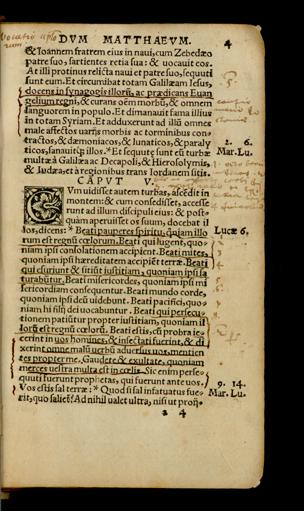 DVM MATTHAEVM. 4
& Ioannem fratrem eius in naui, cum Zebedæo
patre suo, sartientes retia sua: & uocauit eos.
At illi protinus relicta naui et patre suo, sequuti
sunt eum. Et circuibat totam Galilæam Iesus,
docens in synagogis illorũ, ac prædicans Euan
gelium regni, & curans oẽm morbũ, & omnem
languorem in populo. Et dimanauit fama illius
in totam Syriam. Et adduxerunt ad illũ omnes
male affectos uarijs morbis ac torminibus con-
tractos, & dæmoniacos, & lunaticos, & paraly
ticos, sanauitq́; illos. * Et sequutæ sunt eũ turbæ
multæ à Galilæa ac Decapoli, & Hierosolymis,
& Iudæa, et à regionibus trans Iordanem sitis.
2. 6.
Mar. Lu.
CAPVT V.
CVm uidisset autem turbas, ascẽdit in
montem: & cum consedisset, accesse
runt ad illum discipuli eius: & post-
quàm aperuisset os suum, docebat il
los, dicens: * Beati pauperes spiritu, quoniam illo
rum est regnũ cœlorum. Beati qui lugent, quo-
niam ipsi consolationem accipient. Beati mites,
quoniam ipsi hæreditatem accipiẽt terræ. Beati
qui esuriunt & sitiũt iustitiam, quoniam ipsi sa
turabũtur. Beati misericordes, quoniam ipsi mi
sericordiam consequentur. Beati mundo corde,
quoniam ipsi deũ uidebunt. Beati pacifici, quo-
niam hi filij dei uocabuntur. Beati qui persecu-
tionem patiũtur propter iustitiam, quoniam il
lorũ est regnũ cœlorũ. Beati estis, cũ probra ie-
cerint in uos homines, & insectati fuerint, & di
xerint omne malũ uerbũ aduersus uos, mentien
tes propter me. Gaudete & exultate, quoniam
merces uestra multa est in cœlis. Sic enim perse-
quuti fuerunt prophetas, qui fuerunt ante uos.
Vos estis sal terræ: * Quod si sal infatuatus fue-
rit, quo salietꝰ? Ad nihil ualet ultra, nisi ut proij-
Lucæ 6.
9. 14.
Mar. Lu.
a 4